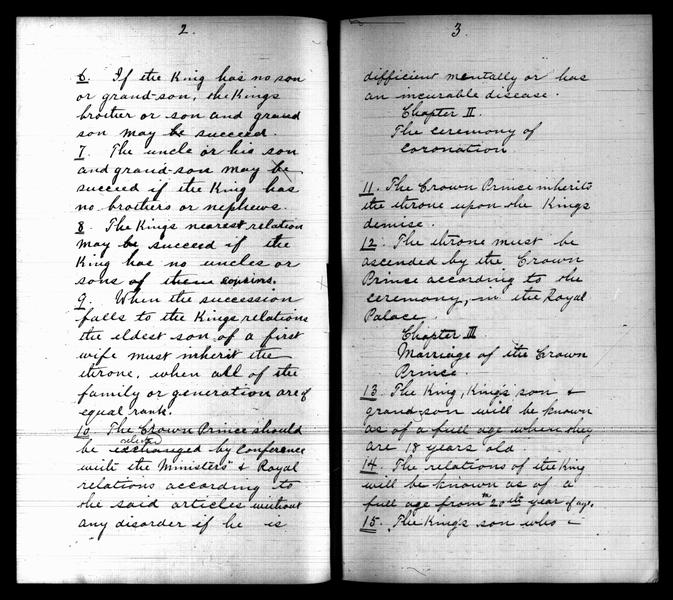 2.
6. If the King has no son
or grand-son, the Kings
brother or son and grand
son may be succeed.
7. The uncle or his son
and grand-son may be
succeed if the King has
no brothers or nephews.
8. The Kings nearest relation
may be succeed if the
King has no uncles or
sons of them cousins.
9. When the succession
falls to the Kings relations
the eldest son of a first
wife must inherit the
throne, when all of the
family or generation are of
equal rank.
10. The Crown Prince should
be exchanged by Conference
with the Ministers & Royal
relations according to
the said articles without
any disorder if he is
3.
difficient mentally or has
an incurable disease.
Chapter II.
The ceremony of
coronation.
11. The Crown Prince inherits
the throne upon the Kings
demise.
12. The throne must be
ascended by the Crown
Prince according to the
ceremony, in the Royal
Palace.
Chapter III
Marriage of the Crown
Prince.
13. The King, King's son, &
grand-son will be known
as of a full age when they
are 18 years old
14. The relations of the King
will be known as of a
full age from 20th year of age.
15. The King's son who -